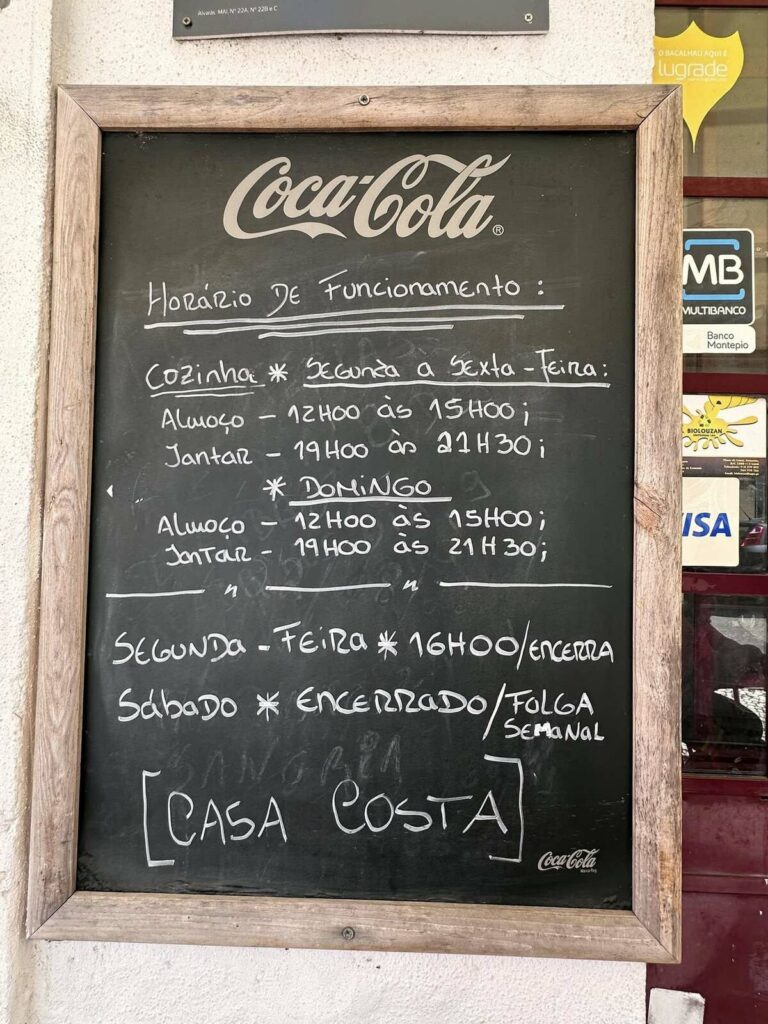 Alvarás: MAI, Nº 22A, Nº 22B e C
O BACALHAU AQUI É
lugrade
Coca-Cola®
Horário DE Funcionamento :
MB
MULTIBANCO
Banco
Montepio
Cozinha * Segunda a Sexta-Feira:
Almoço - 12H00 às 15H00;
Jantar - 19H00 às 21H30;
BIOLOUZAN
* DOMINGO
VISA
Almoço - 12H00 às 15H00;
Jantar - 19H00 às 21H30;
SEGUNDA-FEIRA * 16H00/ENCERRA
Sábado * ENCERRADO/FOLGA
SEMANAL
SANGRIA
[CASA COSTA]
Coca-Cola